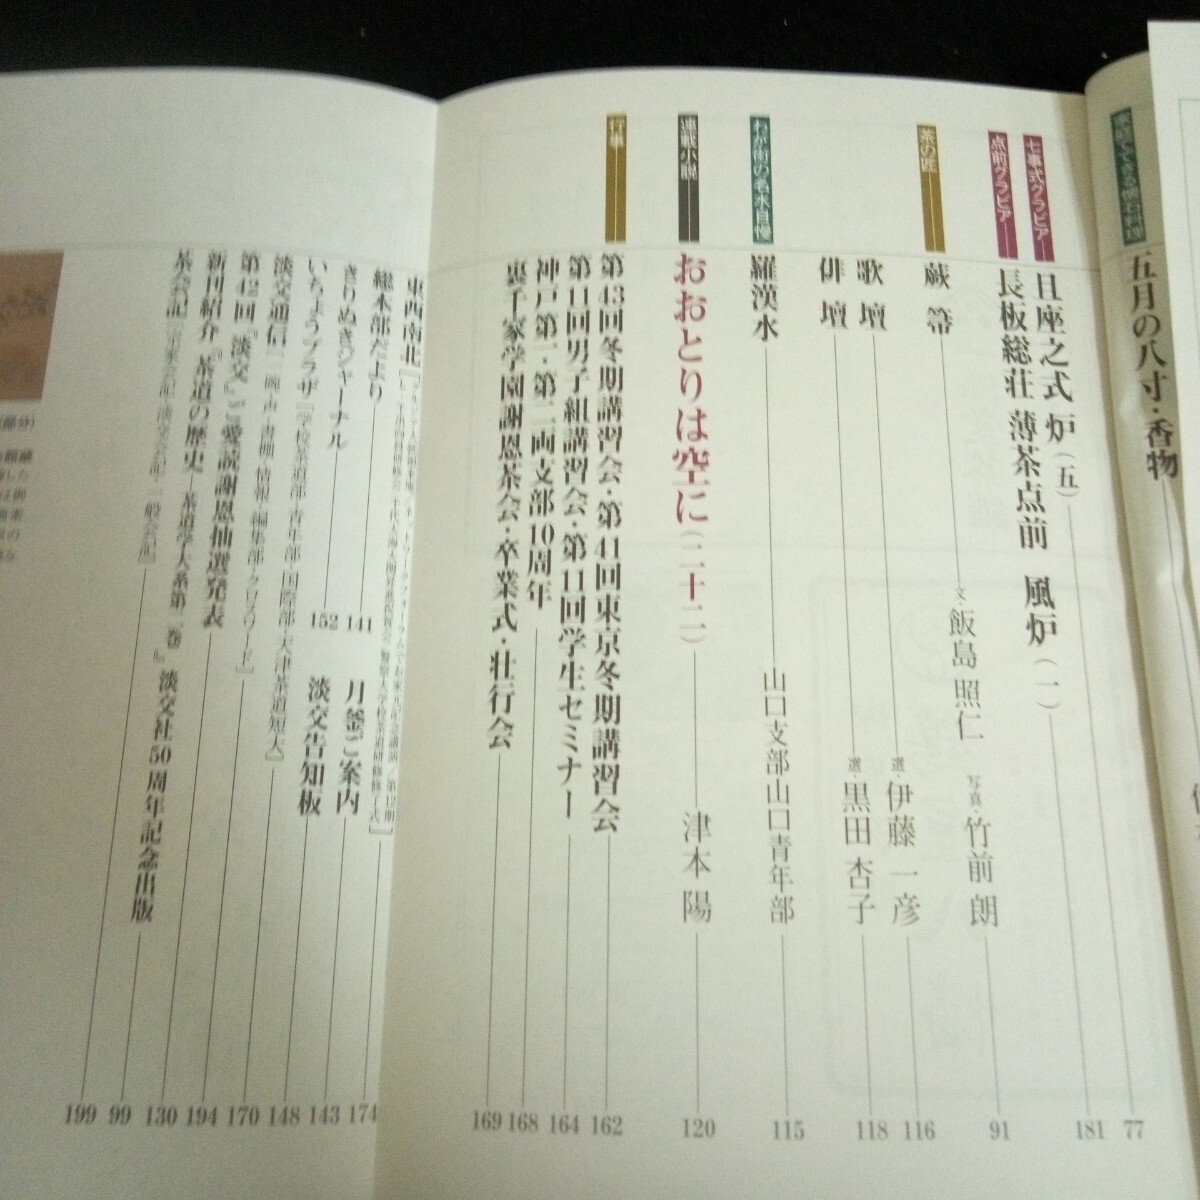 五月の八寸・香物
七事式グラビア
且座之式 炉（五） 77
点前グラビア
長板総荘 薄茶点前 風炉（一） 181
茶の匠
蕨箒 文・飯島 照仁 写真・竹前 朗 91
歌壇 選・伊藤 一彦 116
俳壇 選・黒田 杏子 118
わが街の名水自慢
羅漢水 山口支部山口青年部 115
連載小説
おおとりは空に（二十二） 津本 陽 120
行事
第43回冬期講習会・第41回東京冬期講習会 162
第11回男子組講習会・第11回学生セミナー 164
神戸第一・第二両支部10周年 168
裏千家学園謝恩茶会・卒業式・壮行会 169
東西南北 174
総本部だより 141
月釜ご案内 143
きりぬきジャーナル 152
淡交告知板 148
いちょうプラザ［学校茶道部・青年部・国際部・大津茶道短大］
淡交通信
170
第42回『淡交』ご愛読謝恩抽選発表 194
新刊紹介『茶道の歴史―茶道学大系第二巻』
淡交社50周年記念出版 99
茶会記［宗家会記・淡交会会記・一般会記］
130
199